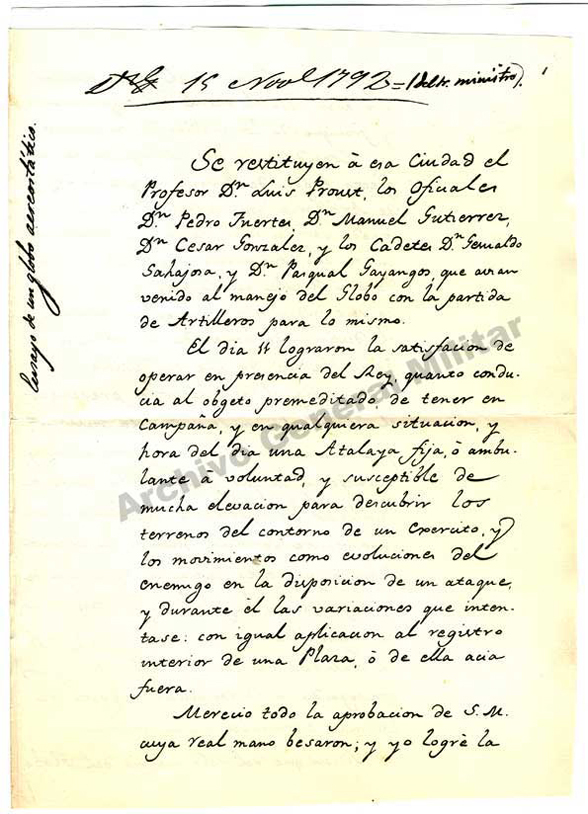 15 Nov.e 1792 = (del Sr. ministro).
Ensayo de un globo aereostático.
Se restituyen à esa Ciudad el
Profesor D.n Luis Proust, los Oficiales
D.n Pedro Fuertes, D.n Manuel Gutierrez,
D.n Cesar Gonzalez, y los Cadetes D.n Gesualdo
Sahajosa, y D.n Pasqual Gayangos, que avian
venido al manejo del Globo con la partida
de Artilleros para lo mismo.
El dia 11 lograron la satisfacion de
operar en presencia del Rey, quanto condu-
cia al obgeto premeditado, de tener en
Campaña, y en qualquiera situacion, y
hora del dia una Atalaya fija, ò ambu-
lante à voluntad, y susceptible de
mucha elevacion para descubrir los
terrenos del contorno de un Exercito, y
los movimientos como evoluciones del
enemigo en la disposicion de un ataque,
y durante èl las variaciones que inten-
tase: con igual aplicacion al registro
interior de una Plaza, ò de ella acia
fuera.
Merecio todo la aprobacion de S. M.
cuya real mano besaron; y yo logrè la
Archivo General Militar